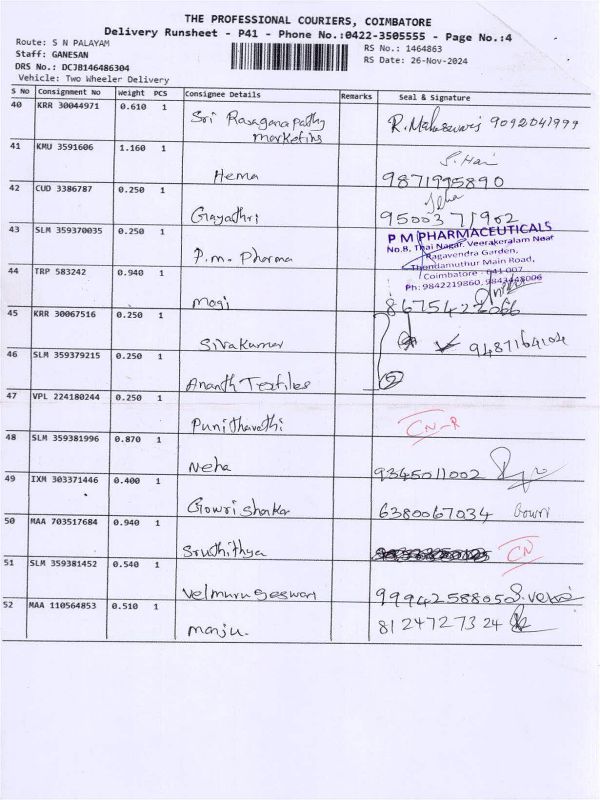 THE PROFESSIONAL COURIERS, COIMBATORE
Delivery Runsheet - P41 - Phone No.:0422-3505555 - Page No.:4
Route: S N PALAYAM
RS No.: 1464863
Staff: GANESAN
RS Date: 26-Nov-2024
DRS No.: DCJB146486304
Vehicle: Two Wheeler Delivery
S No Consignment No Weight PCS Consignee Details Remarks Seal & Signature
40 KRR 30044971 0.610 1
Sri Rasaganapathy R. Maheswari 9092041999
marketing
41 KMU 3591606 1.160 1
S. Hari
Hema 9871995890
42 CUD 3386787 0.250 1
Gayathri 9500371902
43 SLM 359370035 0.250 1
P M PHARMACEUTICALS
No.8, Thai Nagar, Veerakeralam Near
Ragavendra Garden,
Thondamuthur Main Road,
Coimbatore - 641 007
Ph: 9842219860, 9843448006
P.m. Pharma
44 TRP 583242 0.940 1
Mogi
45 KRR 30067516 0.250 1
Sivakumar 9487164104
46 SLM 359379215 0.250 1
Ananth Textiles
47 VPL 224180244 0.250 1
Punithavathi CN-R
48 SLM 359381996 0.870 1
Neha 9345011002
49 IXM 303371446 0.400 1
Gowri shankar 6380067034 Gowri
50 MAA 703517684 0.940 1
Sruthithya CN
51 SLM 359381452 0.540 1
Velmurugeswari 9994258805
52 MAA 110564853 0.510 1
Manju. 8124727324